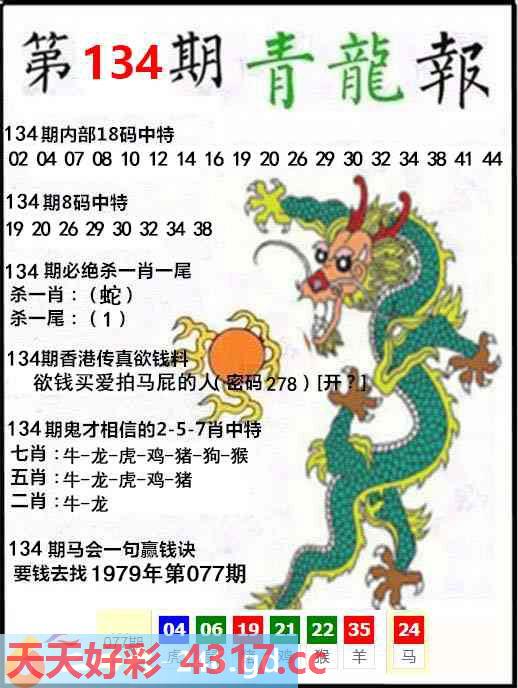 第134期 青龍報
134期内部18码中特
02 04 07 08 10 12 14 16 19 20 26 29 30 32 34 38 41 44
134期8码中特
19 20 26 29 30 32 34 38
134期必绝杀一肖一尾
杀一肖：（蛇）
杀一尾：（1）
134期香港传真欲钱料
欲钱买爱拍马屁的人(密码278)[开？]
134期鬼才相信的2-5-7肖中特
七肖：牛-龙-虎-鸡-猪-狗-猴
五肖：牛-龙-虎-鸡-猪
二肖：牛-龙
134期马会一句赢钱诀
要钱去找1979年第077期
077期 04 06 19 21 22 35 24
虎 鼠 猪 鸡 猴 羊 马
天天好彩 4317.cc